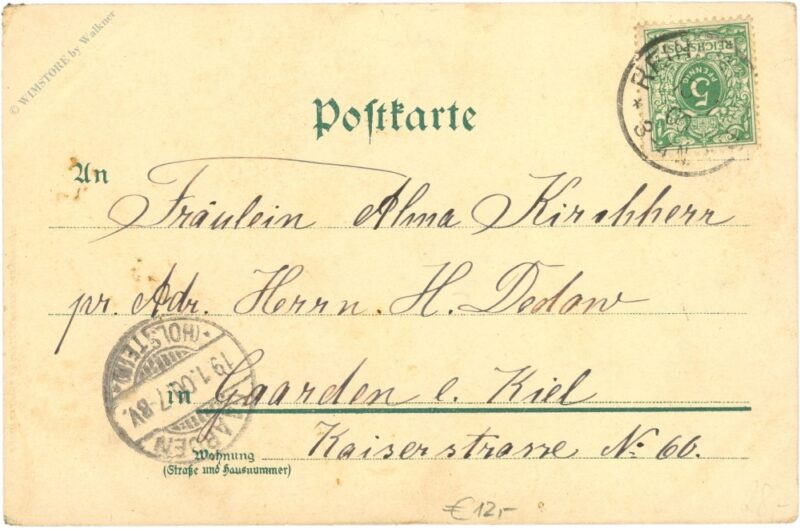 © WIMSTORE by Walkner
REICHSPOST
5
PFENNIG
Postkarte
An
Fräulein Alma Kirchherr
pr. Adr. Herrn H. Dedow
(HOLSTEIN)
19.1.00.7-8V.
GAARDEN
in Gaarden b. Kiel
Kaiserstrasse No 60.
Wohnung
(Straße und Hausnummer)
€ 12,-